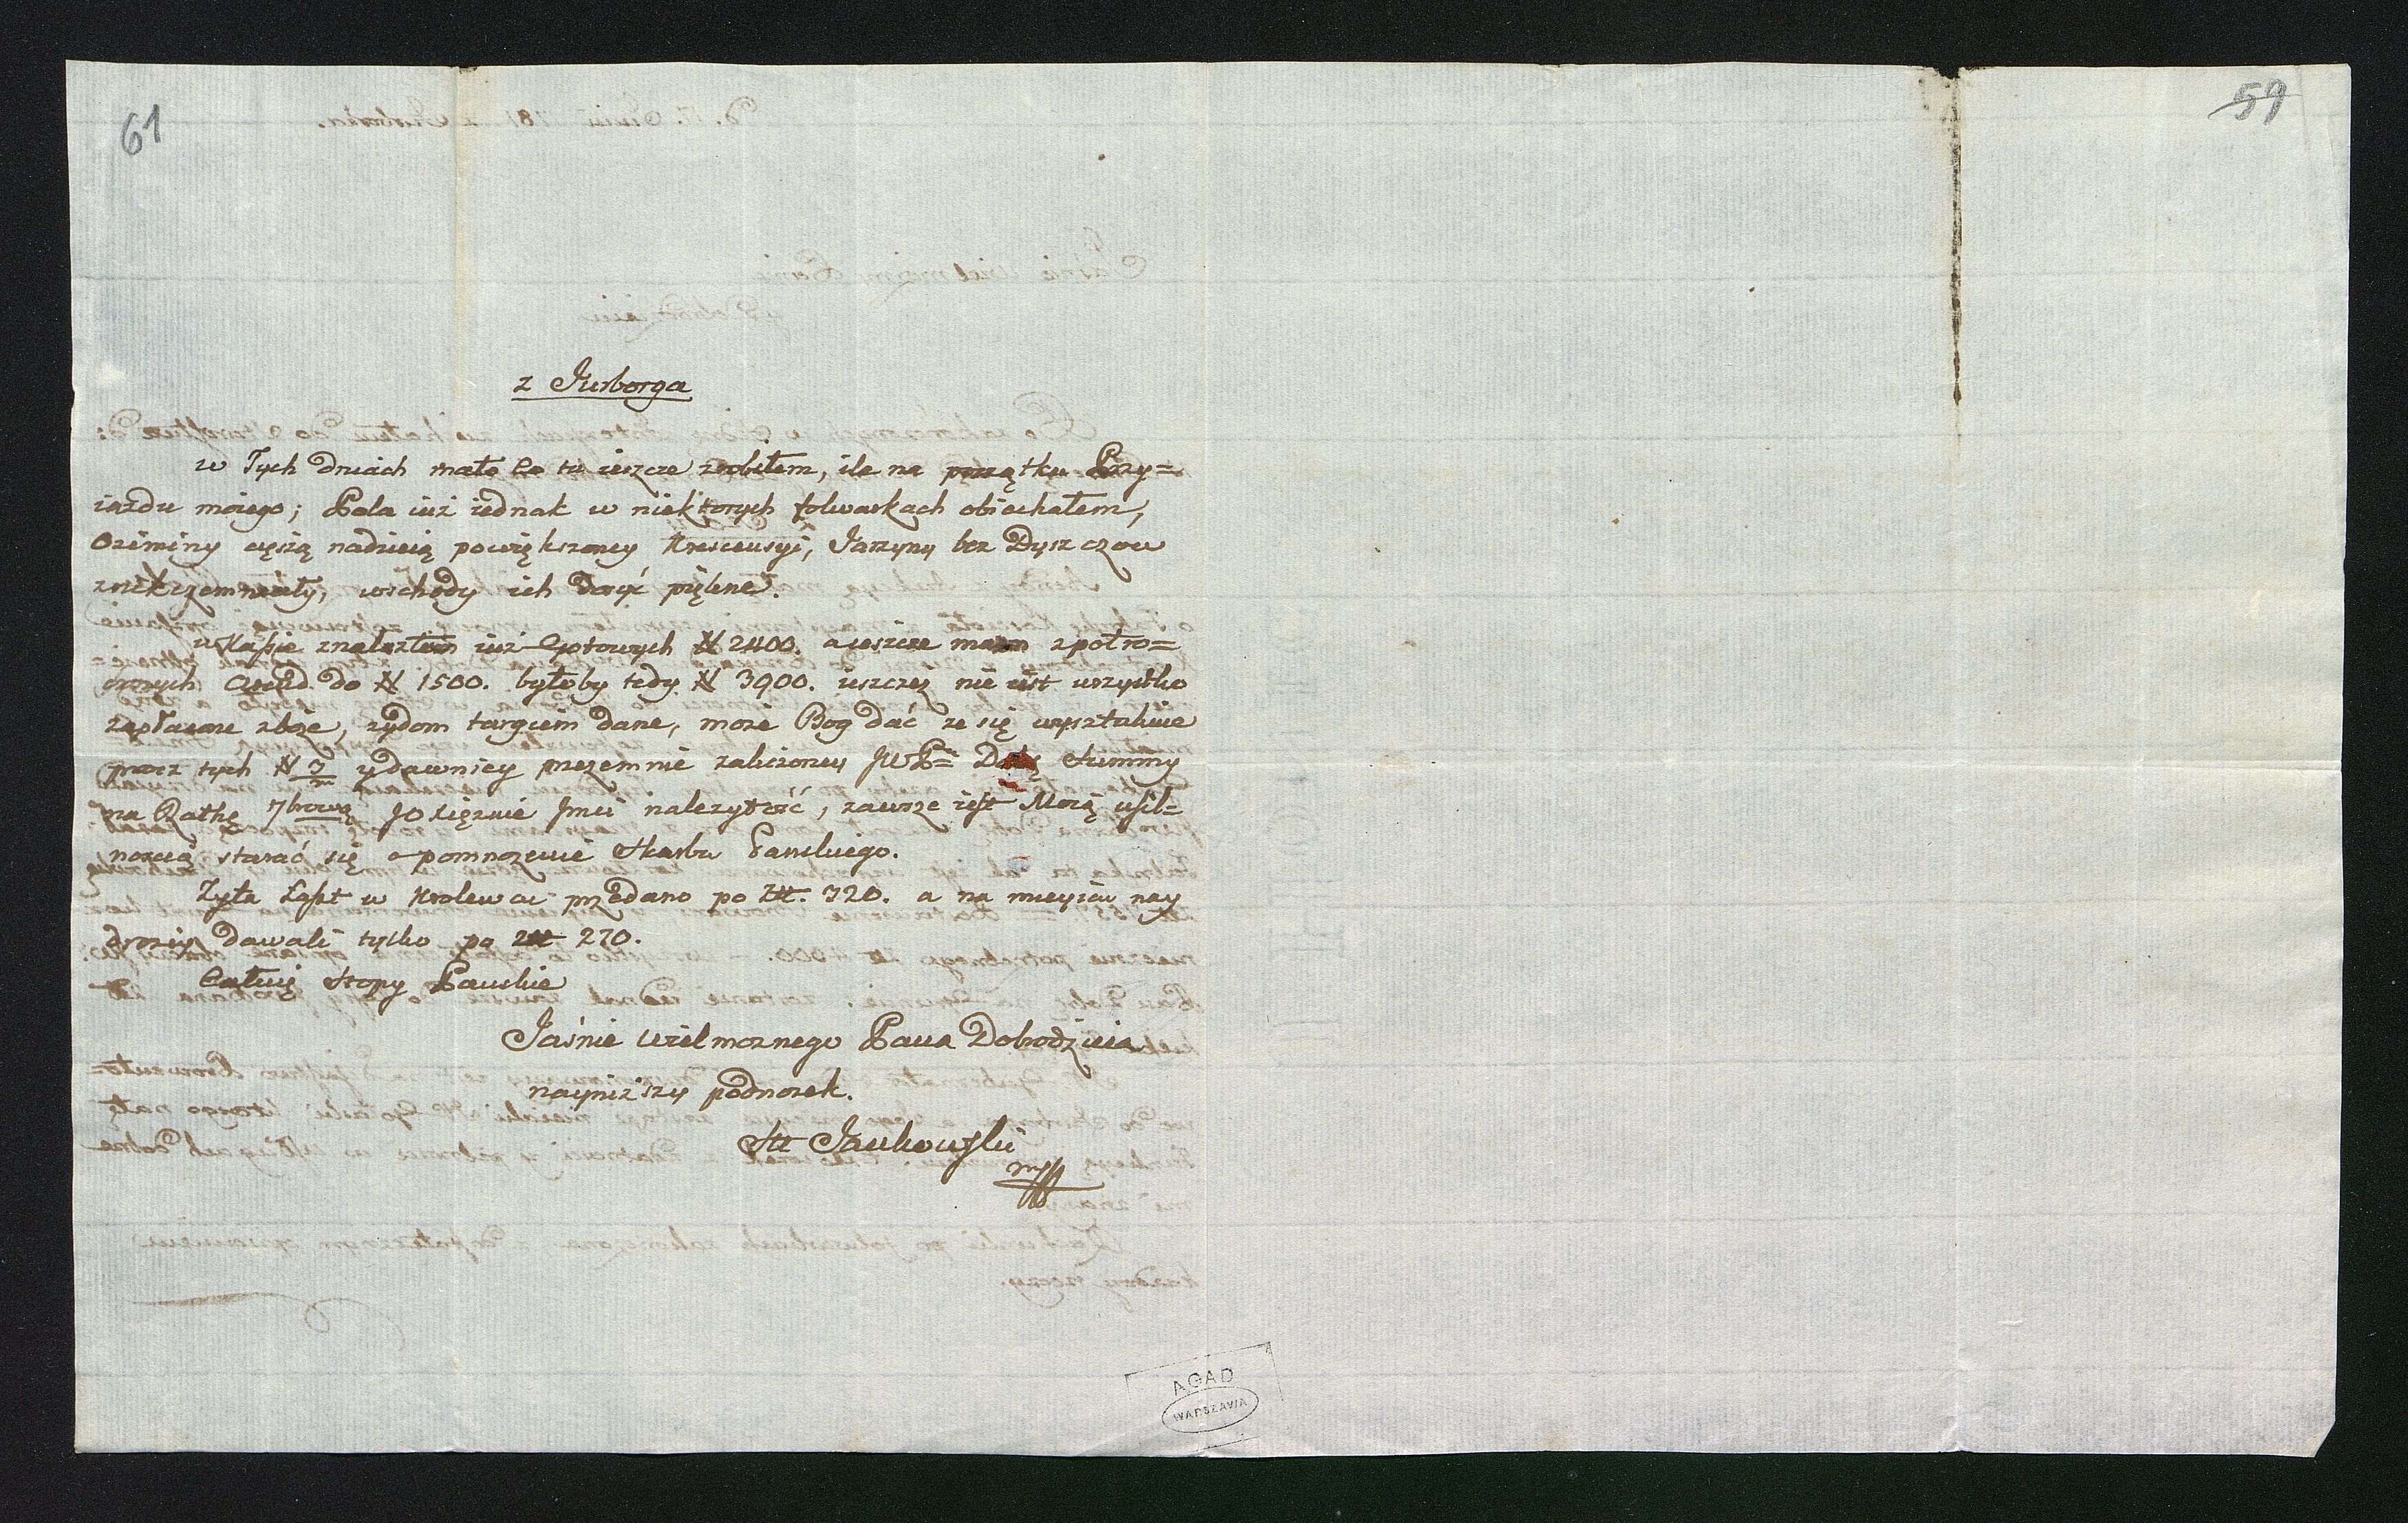 61
59
z Jurborga
w Tych dniach mało Co tu ieszcze zrobiłem, ile na początku Przy=
iazdu moiego; Pola iuż iednak w niektorych folwarkach obiechałem,
Oziminy cięszą nadzieią powiększoney Krescensyi, Jarzyny bez Dyszczow
wschody ich dosyć piękne.
w Kassie znalazłem iuż Gotowych # 2400. a ieszcze mam z potro=
do # 1500. byłoby tedy # 3900. ieszczeż nie iest wszystko
zapłacone zboże, żydom targiem dane, może Bog dać ze się wysztahuie
procz tych # 3/m y dawniey przezemnie zaliczoney JWPna Summy
na Rathę 7brową JO Xiężnie Jmci nalezytość, zawsze iest Moią usil=
noscią starać się o pomnozenie Skarbu Panskiego.
Zyta Łaszt w Krolewcu przedano po Zł. 320. a na mieyscu nay
drożey dawali tylko po Zł 270.
Całuię Stopy Panskie
Jaśnie Wielmoznego Pana Dobrodzieia
nayniższy podnozek.
St Jankowski
mp
AGAD
WARSZAWA